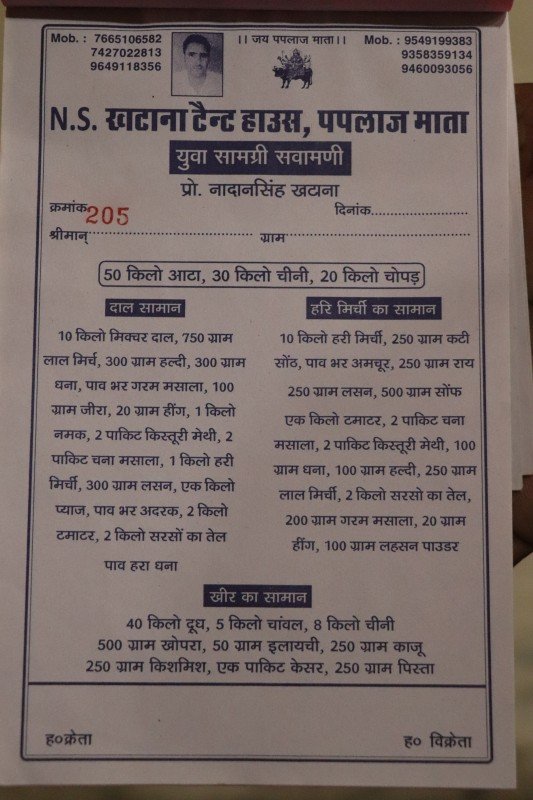 Mob. : 7665106582
7427022813
9649118356
।। जय पपलाज माता।।
Mob. : 9549199383
9358359134
9460093056
N.S. खटाना टैन्ट हाउस, पपलाज माता
युवा सामग्री सवामणी
प्रो. नादानसिंह खटाना
क्रमांक 205
दिनांक
श्रीमान् ग्राम
50 किलो आटा, 30 किलो चीनी, 20 किलो चोपड़
दाल सामान
10 किलो मिक्चर दाल, 750 ग्राम
लाल मिर्च, 300 ग्राम हल्दी, 300 ग्राम
धना, पाव भर गरम मसाला, 100
ग्राम जीरा, 20 ग्राम हींग, 1 किलो
नमक, 2 पाकिट किस्तूरी मेथी, 2
पाकिट चना मसाला, 1 किलो हरी
मिर्ची, 300 ग्राम लसन, एक किलो
प्याज, पाव भर अदरक, 2 किलो
टमाटर, 2 किलो सरसों का तेल
पाव हरा धना
हरि मिर्ची का सामान
10 किलो हरी मिर्ची, 250 ग्राम कटी
सोंठ, पाव भर अमचूर, 250 ग्राम राय
250 ग्राम लसन, 500 ग्राम सोंफ
एक किलो टमाटर, 2 पाकिट चना
मसाला, 2 पाकिट किस्तूरी मेथी, 100
ग्राम धना, 100 ग्राम हल्दी, 250 ग्राम
लाल मिर्ची, 2 किलो सरसो का तेल,
200 ग्राम गरम मसाला, 20 ग्राम
हींग, 100 ग्राम लहसन पाउडर
खीर का सामान
40 किलो दूध, 5 किलो चांवल, 8 किलो चीनी
500 ग्राम खोपरा, 50 ग्राम इलायची, 250 ग्राम काजू
250 ग्राम किशमिश, एक पाकिट केसर, 250 ग्राम पिस्ता
ह०क्रेता
ह० विक्रेता